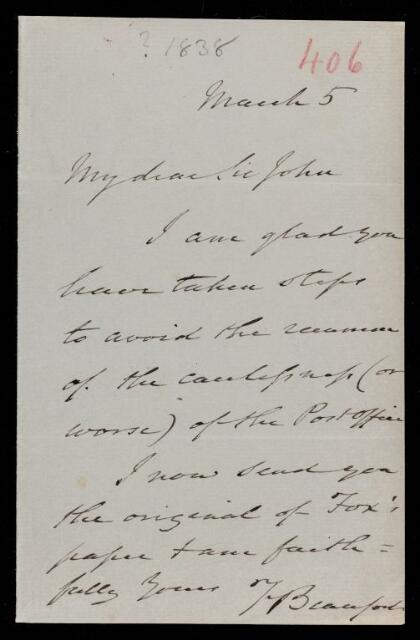 ? 1838
406
March 5
My dear Sir John
I am glad you
have taken steps
to avoid the
of the carelessness (or
worse) of the Post office
I now send you
the original of Fox's
paper & am faith=
fully Yours F Beaufort